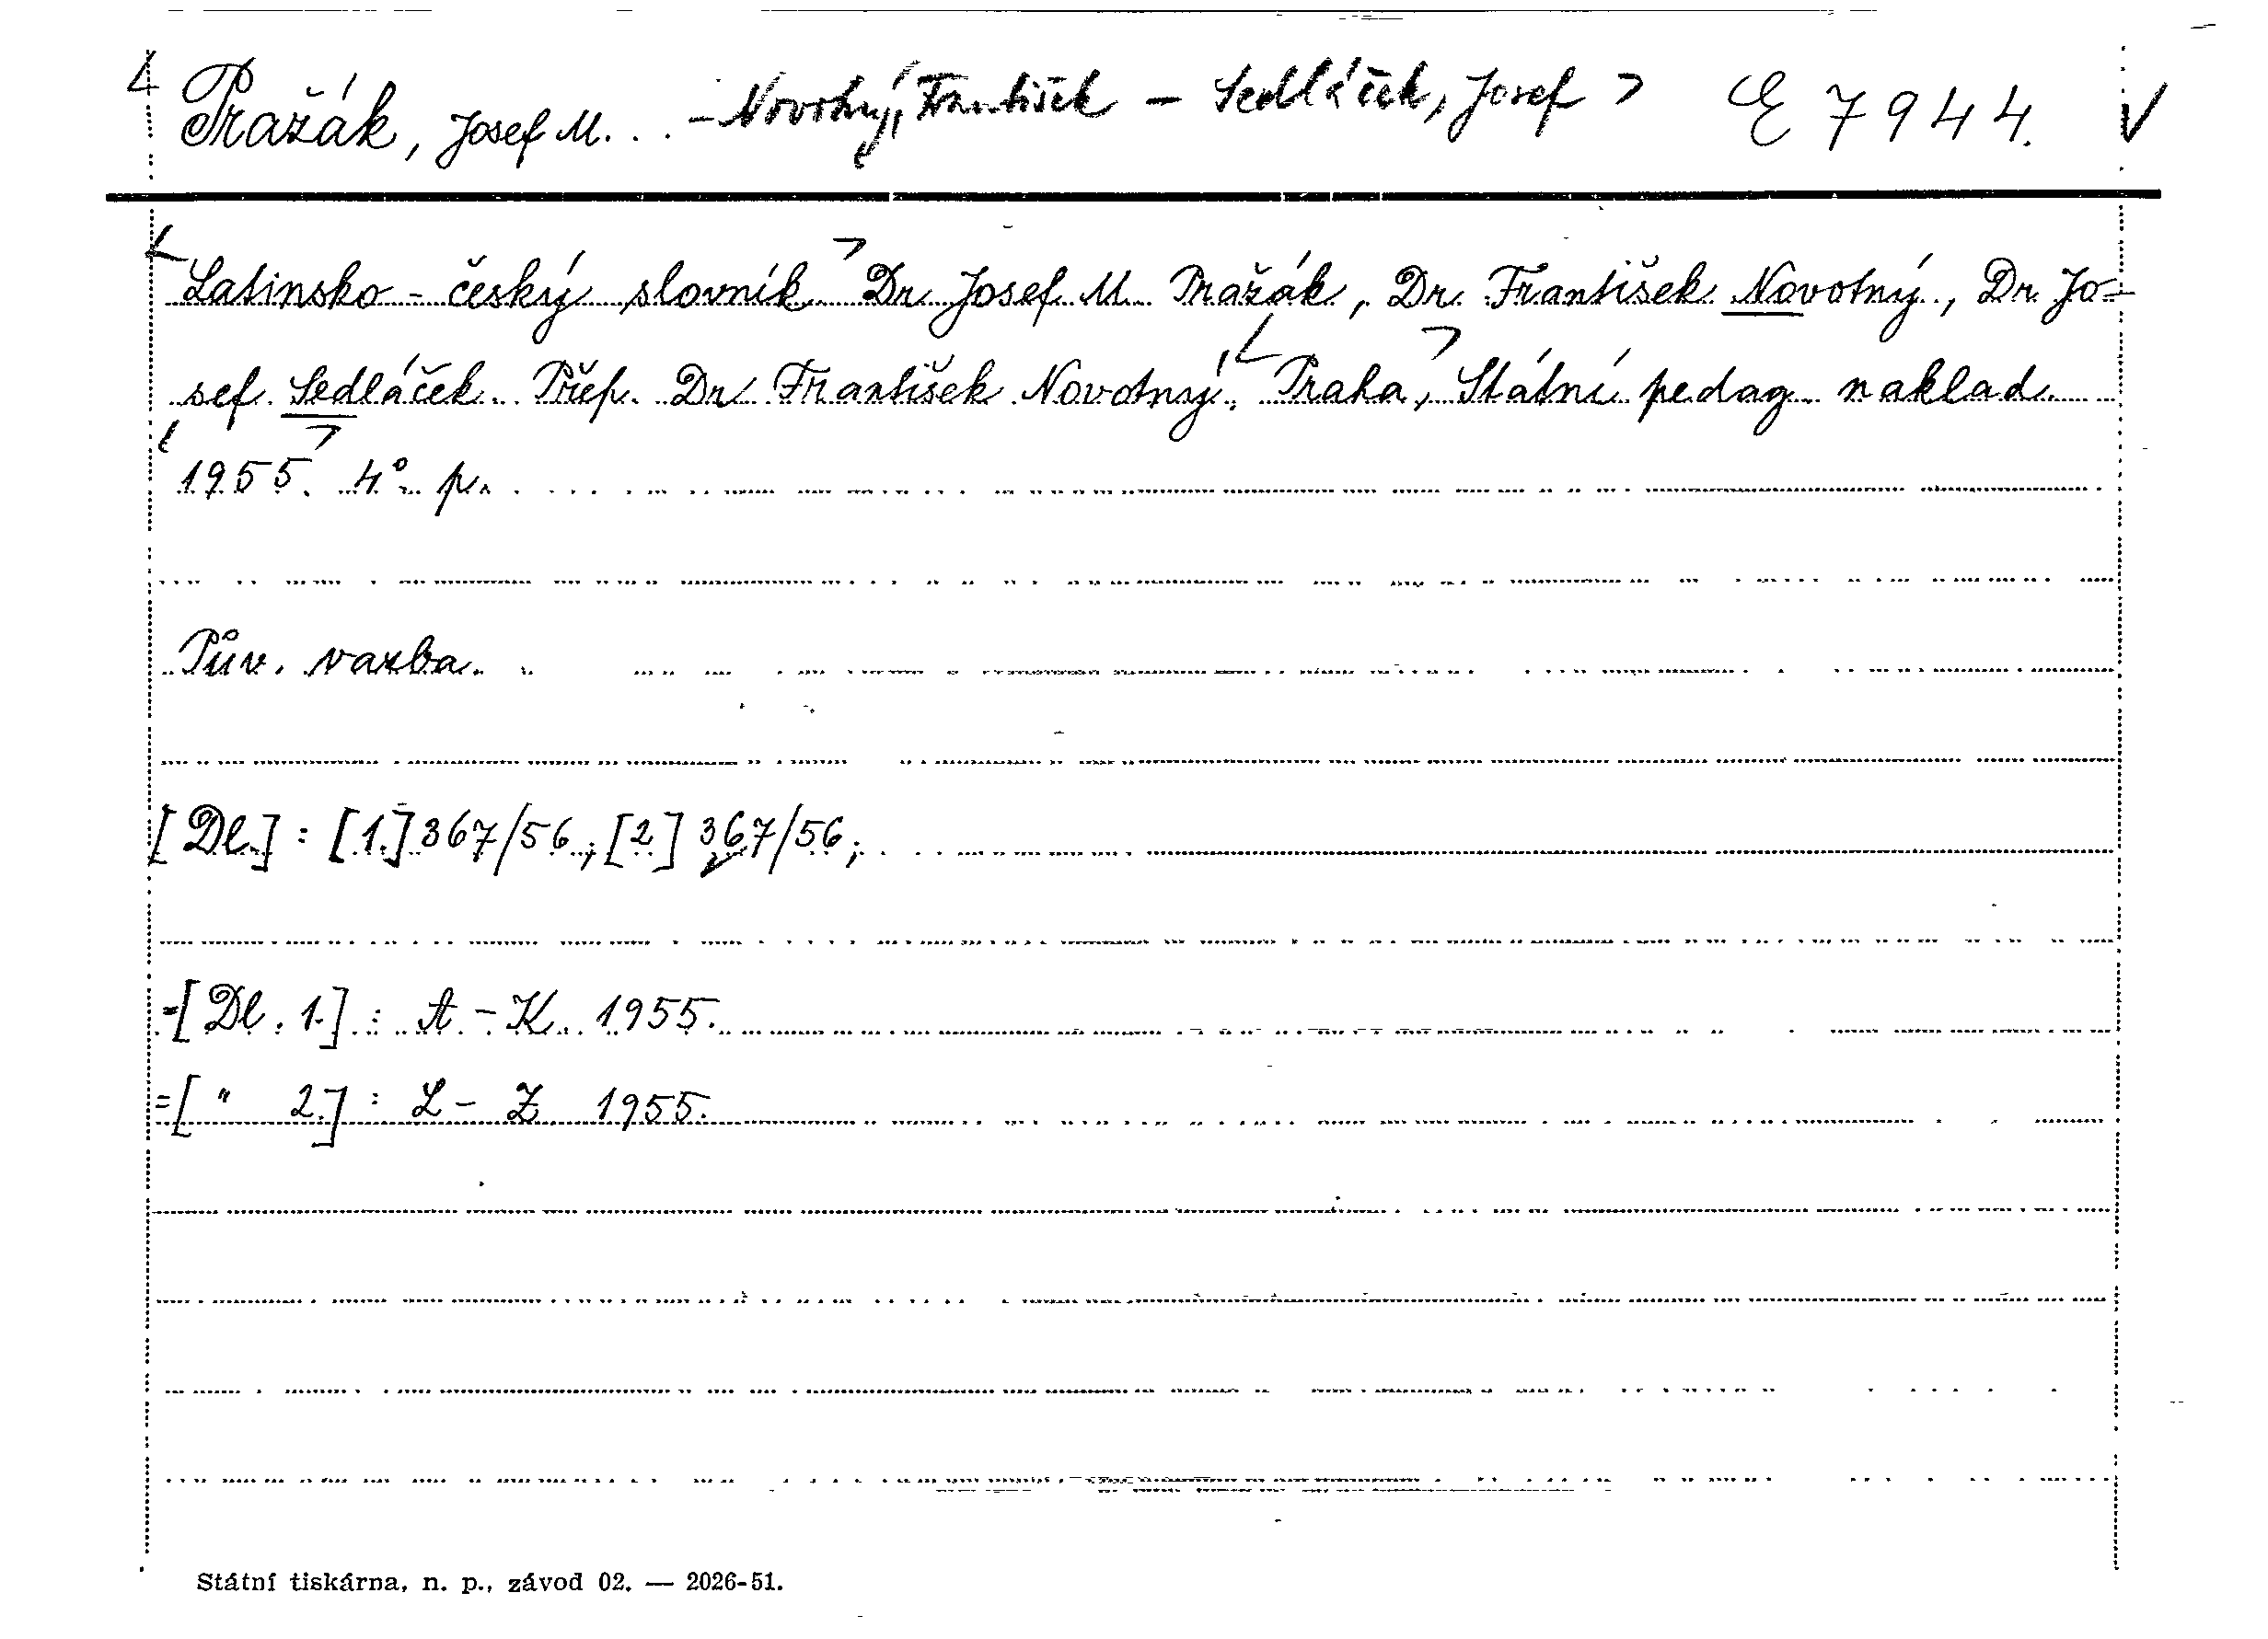 <Pražák, Josef M. . . - Novotný, František - Sedláček, Josef> E 7944. V
<Latinsko-český slovník> Dr. Josef M. Pražák, Dr. František Novotný, Dr. Jo-
sef Sedláček. Přep. Dr František Novotný. <Praha>, Státní pedag. naklad.
<1955>. 4° p.
Pův. vazba.
[Dl.] : [1.] 367/56; [2] 367/56;
=[Dl. 1.] : A - K. 1955.
=[ " 2.] : L - Z 1955.
Státní tiskárna, n. p., závod 02. — 2026-51.